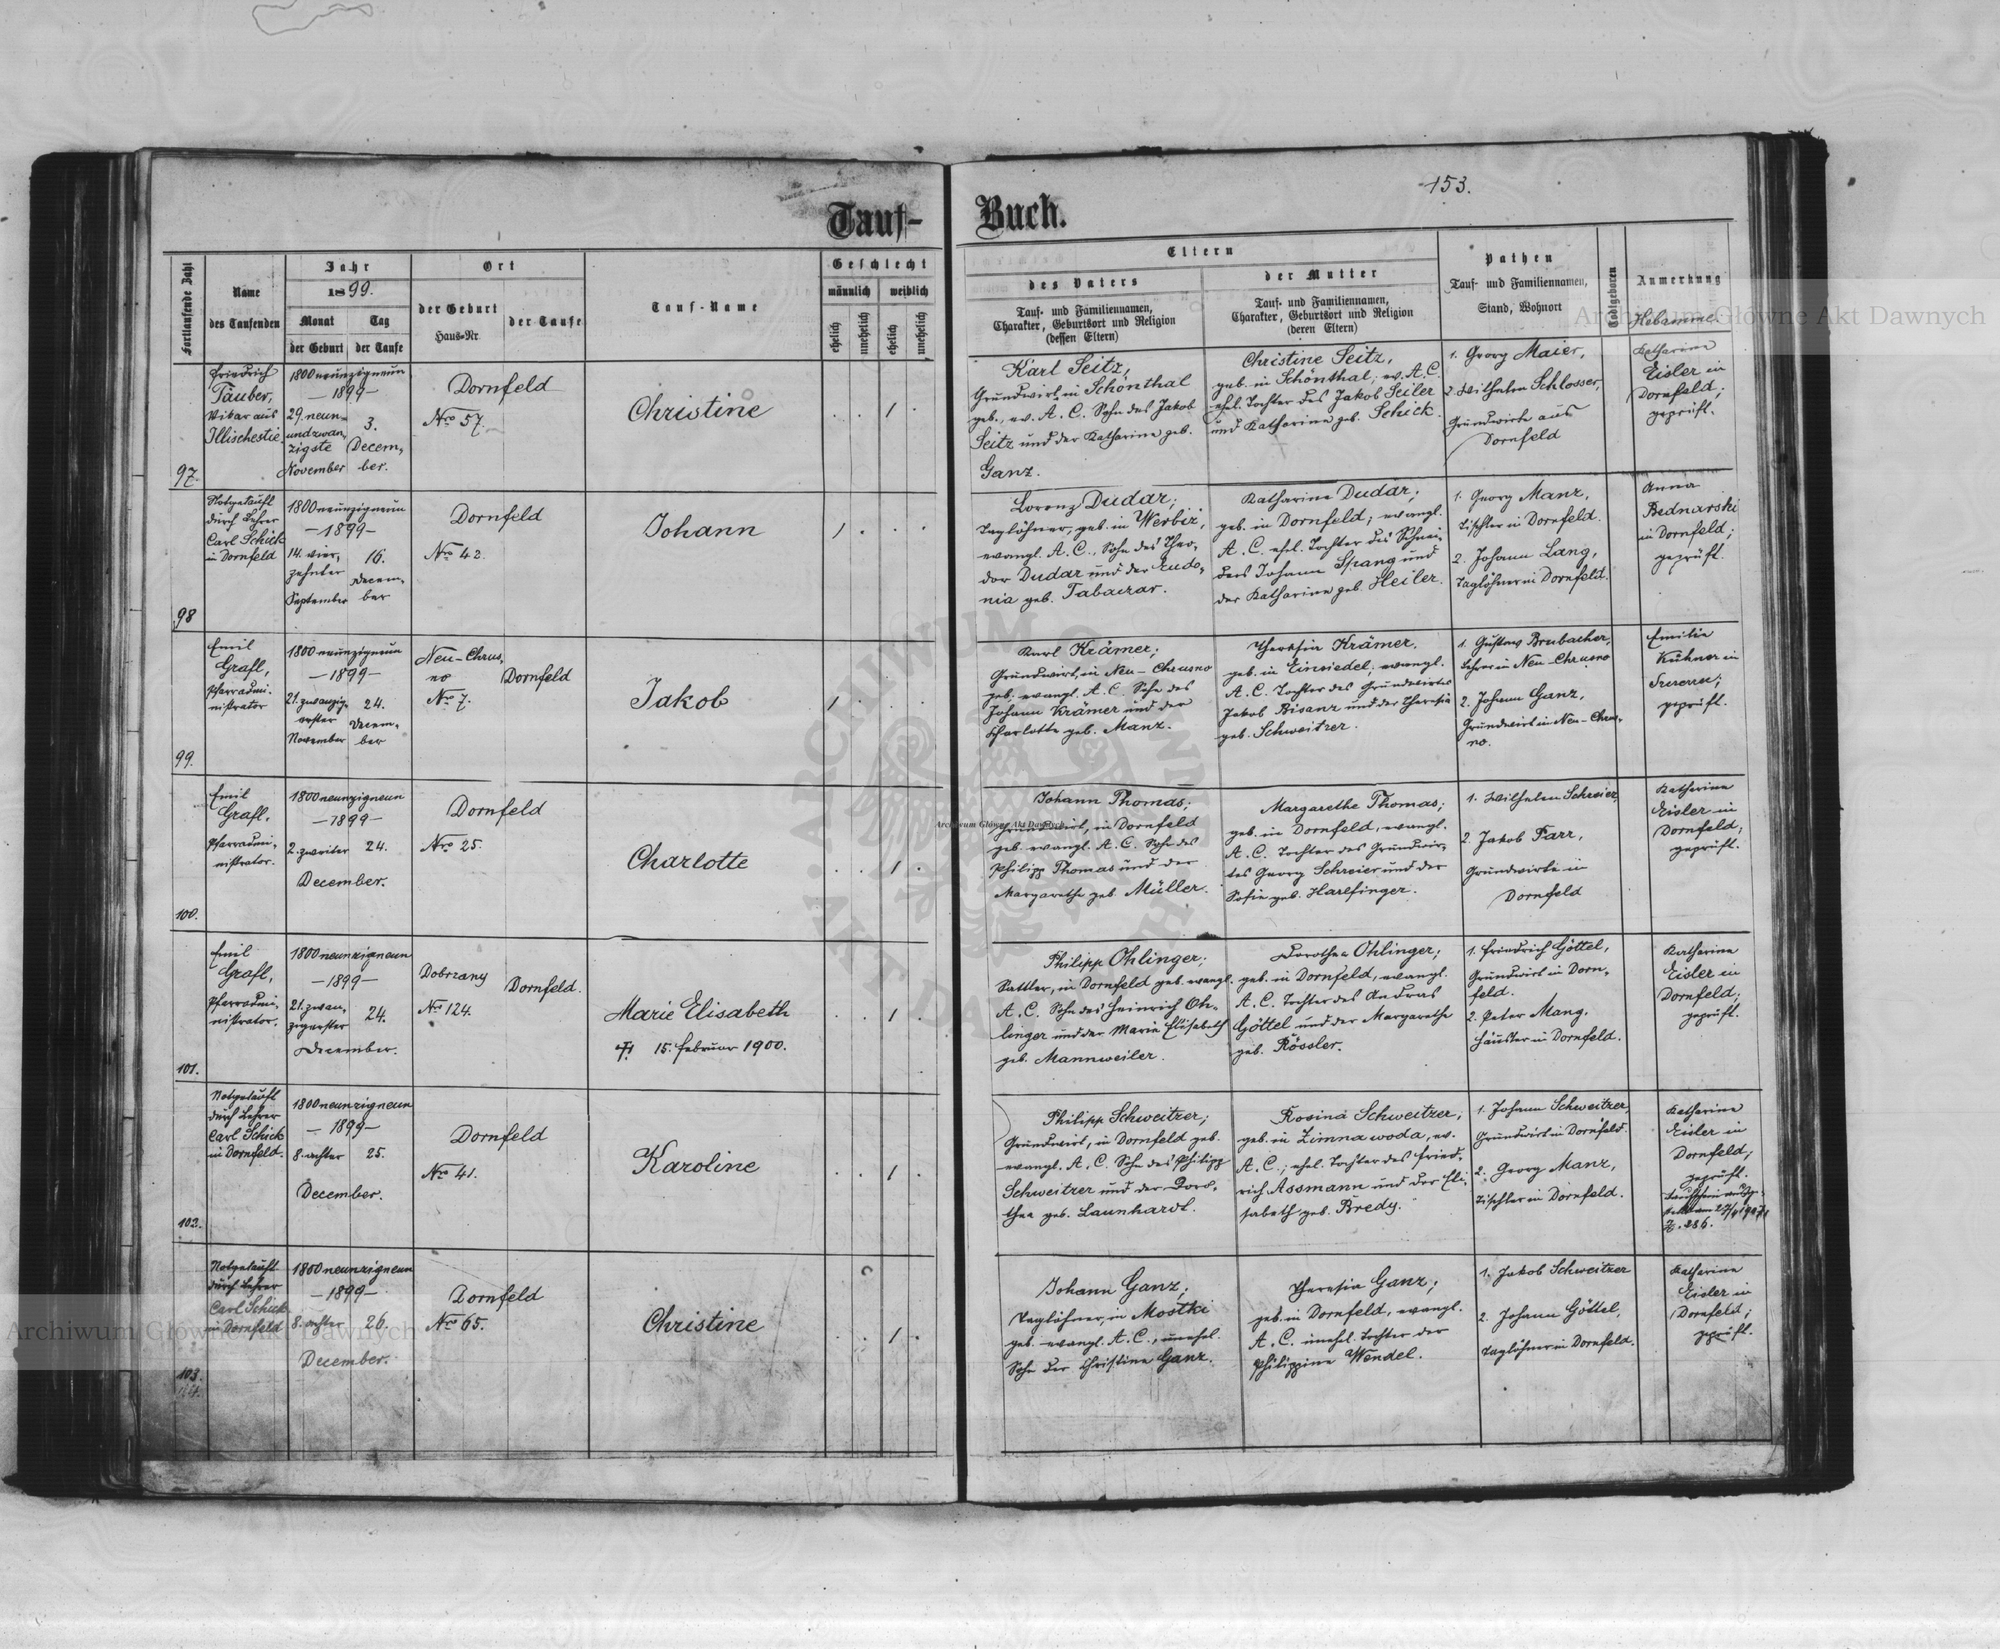 153.
Tauf-Buch.
Fortlaufende Zahl
Name
des Taufenden
Jahr
1899.
Monat
der Geburt
Tag
der Taufe
Ort
der Geburt
Haus-Nr
der Taufe
Tauf-Name
Geschlecht
männlich
weiblich
ehelich
unehelich
ehelich
unehelich
Eltern
des Vaters
Tauf- und Familiennamen,
Charakter, Geburtsort und Religion
(dessen Eltern)
der Mutter
Tauf- und Familiennamen,
Charakter, Geburtsort und Religion
(deren Eltern)
Pathen
Tauf- und Familiennamen,
Stand, Wohnort
Todtgeboren
Anmerkung
Hebamme
97.
Friedrich
Täuber,
Vikar aus
Illischestie
1800 neunzigneun
— 1899 —
29. neun-
undzwan-
zigste
November
3.
Decem-
ber.
Dornfeld
Nro 57.
Christine
1
Karl Seitz,
Grundwirt, in Schönthal
geb., ev. A. C. Sohn des Jakob
Seitz und der Katharine geb.
Ganz.
Christine Seitz,
geb. in Schönthal, ev. A. C.
ehel. Tochter des Jakob Seiler
und Katharine geb. Schick.
1. Georg Maier,
2. Wilhelm Schlosser,
Grundwirte aus
Dornfeld
Katharine
Eisler in
Dornfeld;
geprüft.
98
Notgetauft
durch Lehrer
Carl Schick
in Dornfeld
1800 neunzigneun
— 1899 —
14. vier-
zehnter
September
16.
Decem-
ber
Dornfeld
Nro 42.
Johann
1
Lorenz Dudar;
Taglöhner, geb. in Werbiz,
evangl. A. C., Sohn des Theo-
dor Dudar und der Eudo-
nia geb.
Katharine Dudar;
geb. in Dornfeld; evangl.
A. C. ehel. Tochter des Schnei-
ders Johann Spang und
der Katharine geb. Heiler.
1. Georg Manz,
Tischler in Dornfeld.
2. Johann Lang,
Taglöhner in Dornfeld.
Anna
Bednarski
in Dornfeld;
geprüft.
99.
Emil
Grafl,
Pfarradmi-
nistrator
1800 neunzigneun
— 1899 —
21. zwanzig-
erster
November
24.
Decem-
ber
Neu-Chrus-
no
Nro 7.
Dornfeld
Jakob
1
Karl Krämer;
Grundwirt, in Neu-Chrusno
geb. evangl. A. C. Sohn des
Johann Krämer und der
Charlotte geb. Manz.
Theresia Krämer,
geb. in Einsiedel, evangl.
A. C. Tochter des Grundwirtes
Jakob Bisanz und der Theresia
geb. Schweitzer.
1. Gustav Brubacher,
Lehrer in Neu-Chrusno
2. Johann Ganz,
Grundwirt in Neu-Chrus-
no.
Emilie
Kühner in
geprüft.
100.
Emil
Grafl,
Pfarradmi-
nistrator.
1800 neunzigneun
— 1899 —
2. zweiter
December.
24.
Dornfeld
Nro 25.
Charlotte
1
Johann Thomas;
Grundwirt, in Dornfeld
geb. evangl. A. C. Sohn des
Philipp Thomas und der
Margarethe geb. Müller.
Margarethe Thomas;
geb. in Dornfeld, evangl.
A. C. Tochter des Grundwir-
tes Georg Schreier und der
Sofie geb. Harlfinger.
1. Wilhelm Schreier,
2. Jakob Farr,
Grundwirte in
Dornfeld
Katharine
Eisler in
Dornfeld;
geprüft.
101.
Emil
Grafl,
Pfarradmi-
nistrator.
1800 neunzigneun
— 1899 —
21. zwan-
zigerster
December.
24.
Dobrzany
Nro 124.
Dornfeld.
Marie Elisabeth
† 15. Februar 1900.
1
Philipp Ohlinger;
Sattler, in Dornfeld geb. evangl.
A. C. Sohn des Heinrich Oh-
linger und der Marie Elisabeth
geb. Mannweiler.
Dorothea Ohlinger;
geb. in Dornfeld, evangl.
A. C. Tochter des Andreas
Göttel und der Margarethe
geb. Rössler.
1. Friedrich Göttel,
Grundwirt in Dorn-
feld.
2. Peter Mang,
Häusler in Dornfeld.
Katharine
Eisler in
Dornfeld;
geprüft.
102.
Notgetauft
durch Lehrer
Carl Schick
in Dornfeld.
1800 neunzigneun
— 1899 —
8. achter
December.
25.
Dornfeld
Nro 41.
Karoline
1
Philipp Schweitzer;
Grundwirt, in Dornfeld geb.
evangl. A. C. Sohn des Philipp
Schweitzer und der Doro-
thea geb. Launhardt.
Rosina Schweitzer,
geb. in Zimnawoda, ev.
A. C.; ehel. Tochter des Fried-
rich Assmann und der Eli-
sabeth geb. Bredy.
1. Johann Schweitzer,
Grundwirt in Dornfeld.
2. Georg Manz,
Tischler in Dornfeld.
Katharine
Eisler in
Dornfeld;
geprüft.
Z. 286.
103.
Notgetauft
durch Lehrer
Carl Schick
in Dornfeld
1800 neunzigneun
— 1899 —
8. achter
December.
26.
Dornfeld
Nro 65.
Christine
1
Johann Ganz;
Taglöhner, in Mostki
geb. evangl. A. C., unehel.
Sohn der Christine Ganz.
Theresia Ganz;
geb. in Dornfeld, evangl.
A. C. unehel. Tochter der
Philippine Wendel.
1. Jakob Schweitzer
2. Johann Göttel,
Taglöhner in Dornfeld.
Katharine
Eisler in
Dornfeld;
geprüft.
Archiwum Główne Akt Dawnych
Archiwum Główne Akt Dawnych
Archiwum Główne Akt Dawnych